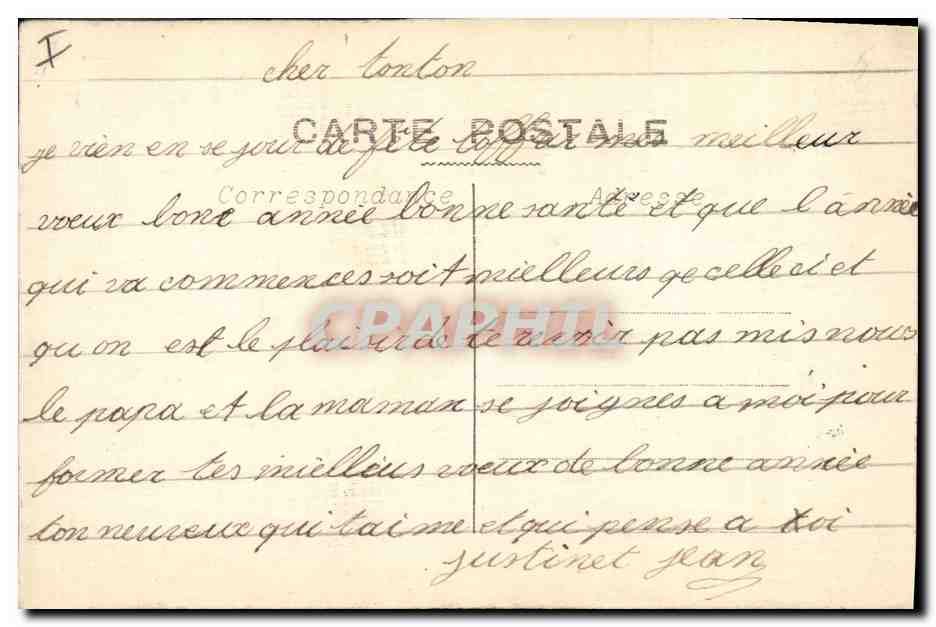 I
cher tonton
CARTE POSTALE
je vien en se jour de fète toffrir mes meilleur
Correspondance Adresse
vœux bonc année bonne santé et que l'année
qui va commences soit mielleurs qe celle ci et
qu on est le plaisir de te revoir pas mis nous
le papa et la maman se joignes a moi pour
former tes mielleus vœux de bonne année
ton neureux qui taime et qui pense a toi
justinet jean
CPAPHIL